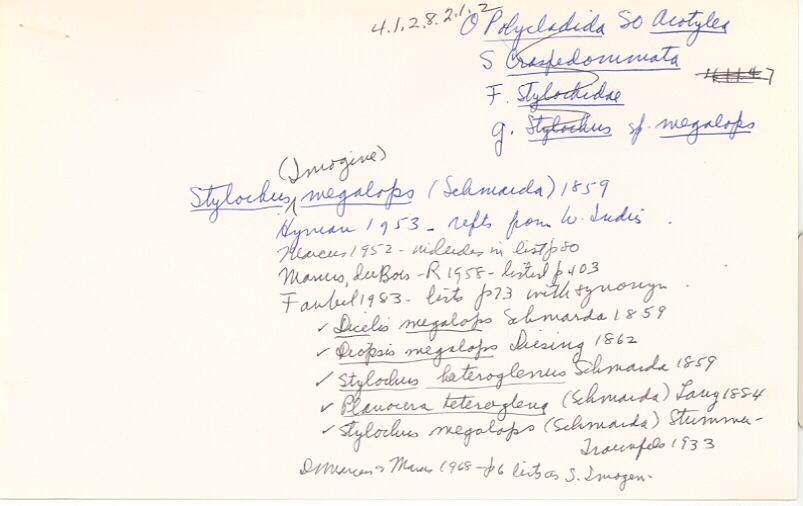 4.1.2.8.2.1.2
O Polycladida SO Acotylea
S Craspedommata
F. Stylochidae
g. Stylochus sp. megalops
(Imogine)
Stylochus megalops (Schmarda) 1859
Hyman 1953 - refts from W. Indis.
Marcus 1952 - includes in list p 80
Marcus, du Bois - R 1958 - listed p 403
Faubel 1983 - lists p 73 with synonyn.
✓ Dicelis megalops Schmarda 1859
✓ Diopsis megalops Diesing 1862
✓ Stylochus heteroglenus Schmarda 1859
✓ Planocera heteroglena (Schmarda) Lang 1884
✓ Stylochus megalops (Schmarda) Stummer-
Traunfels 1933
D Marcus & Marcus 1968 - p 6 lists as S. Imogen.